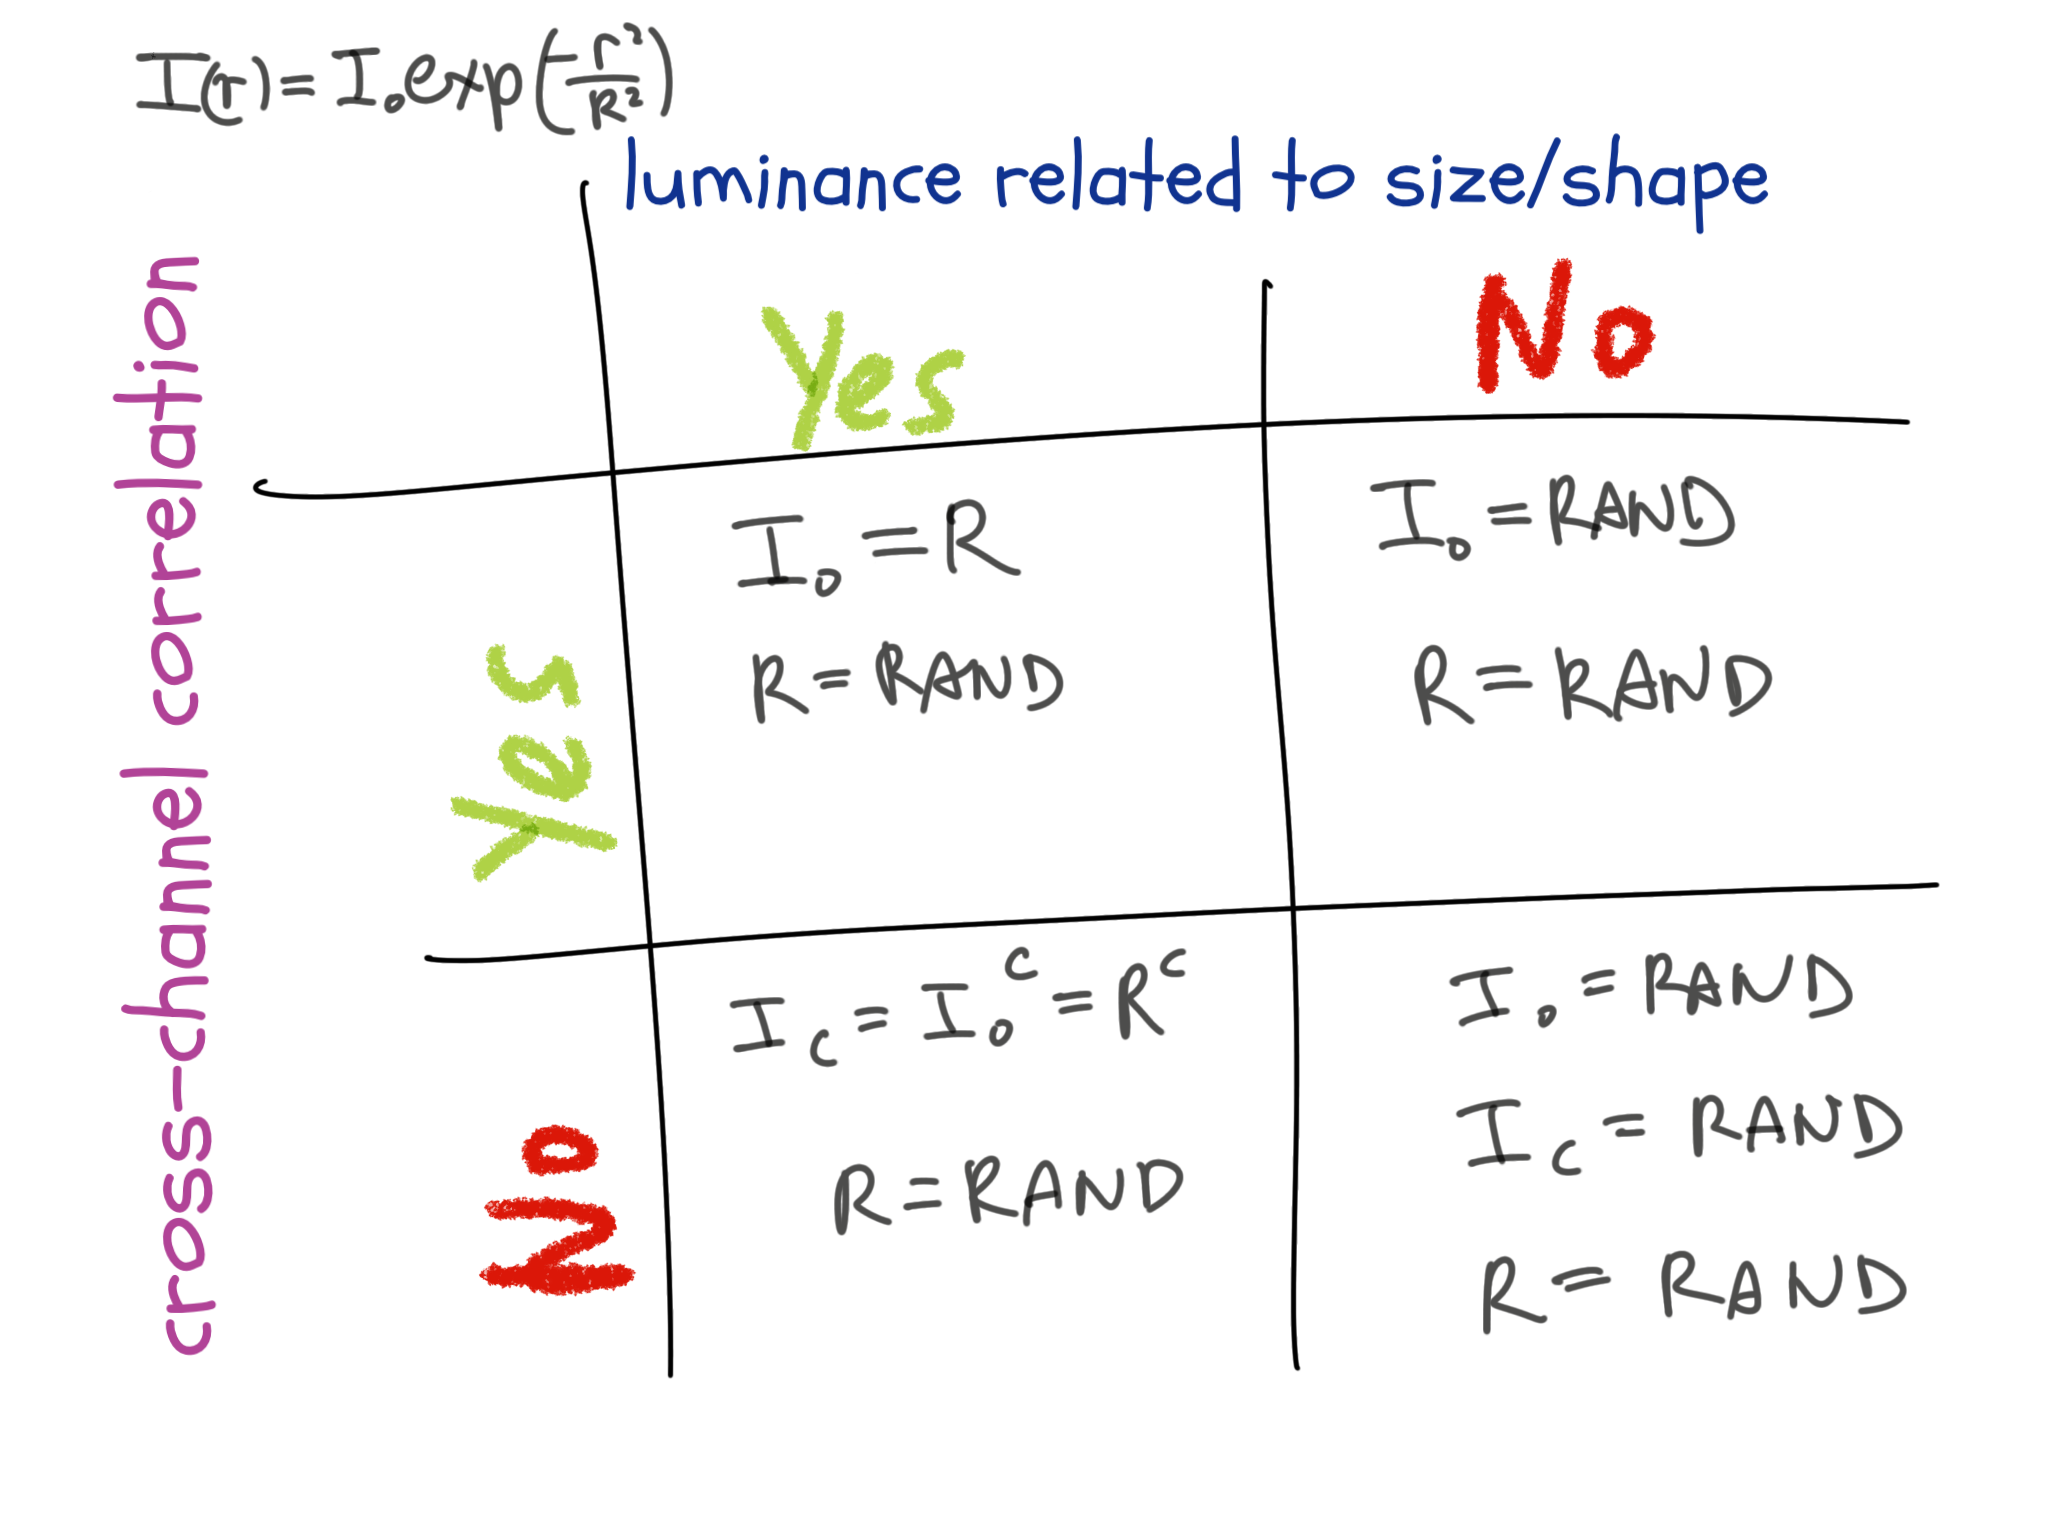 I(r) = I₀ exp(-r²/R²)
luminance related to size/shape
Yes
No
cross-channel correlation
Yes
I₀ = R
R = RAND
I₀ = RAND
R = RAND
No
I_c = I₀^c = R^c
R = RAND
I₀ = RAND
I_c = RAND
R = RAND